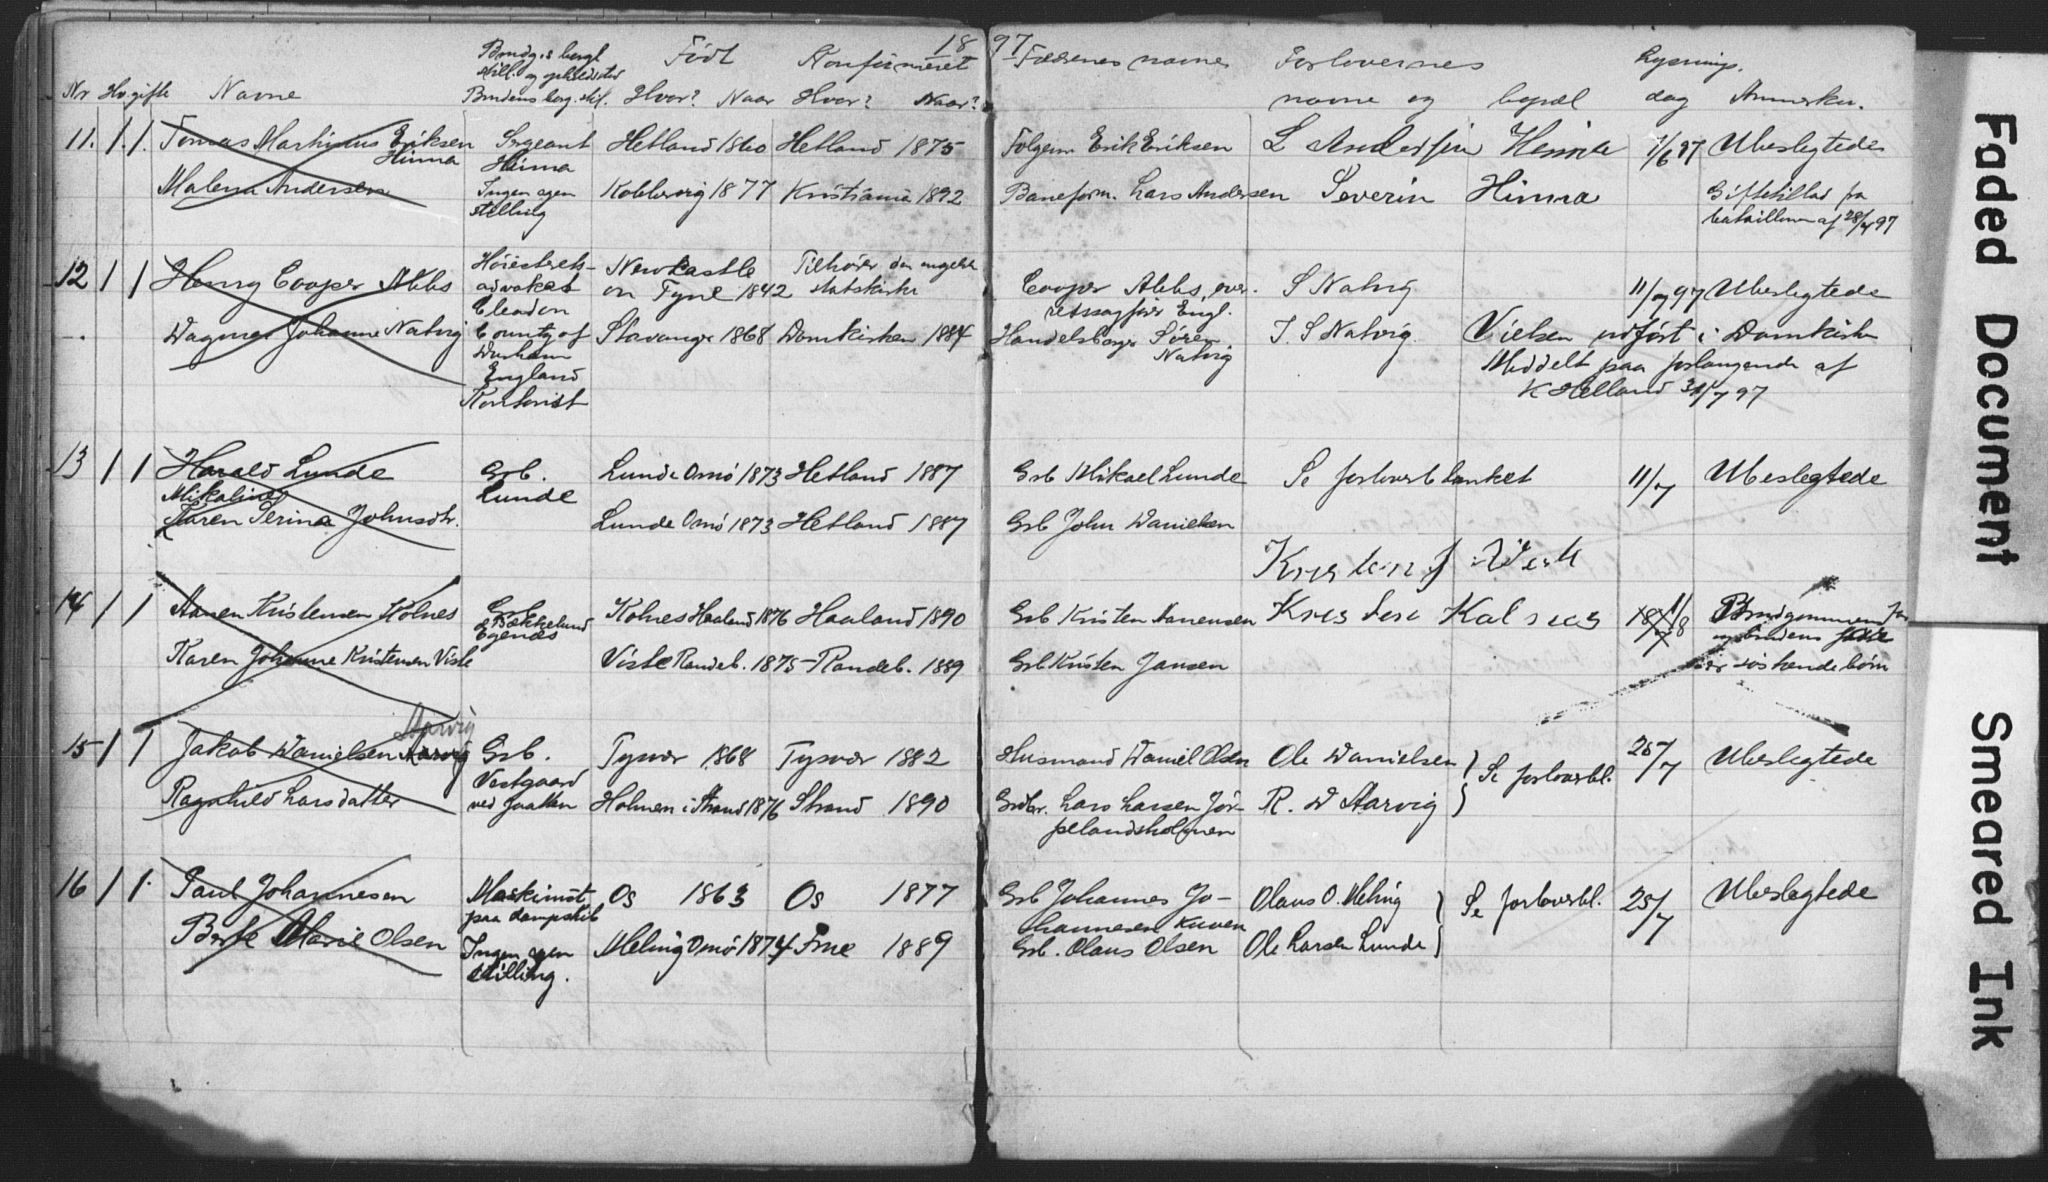 1897
Nr Hv. gifte Navne Brudg.s borgl. still. og opholdssted Brudens borg. stil. Født Hvor? Naar Konfirmeret Hvor? Naar? Fædrenes navne Forlovernes navne og bopæl Lysnings. dag Anmerkn.
11. 1. 1. Tomas Martinius Eriksen Hinna Sergeant Hinna Hetland 1860 Hetland 1875 Erik Eriksen L Andersen Hinna 1/6 97 Ubeslegtede
Malena Andersen Ingen egen stilling 1877 Kristiania 1892 Baneform. Lars Andersen Severin Hinna Giftetillad fra bataillonen af 28/4 97
12 1 1 Henry Cooper Abbs Høiesterets-advokat Cleadon County of Durham England Newkastle on Tyne 1842 Tilhører den engelske statskirke Cooper Abbs, over-retssagfører Engl. S Natvig 11/7 97 Ubeslegtede
Dagmar Johanne Natvig Kontorist Stavanger 1868 Domkirken 1884 Handelsborger Sören Natvig T. S Natvig. Vielsen udført i Domkirken
Meddelt paa forlangende af
K Helland 31/7 97
13 1 1 Harald Lunde Grb. Lunde Lunde Omö 1873 Hetland 1887 Grb Mikael Lunde Se forloverblanket 11/7 Ubeslegtede
Mikaline
Karen Serina Johnsdtr. Lunde Omö 1873 Hetland 1887 Grb John Danielsen
14 1 1 Aanen Kristensen Kolnes Grb. Bækkelund Egenæs Kolnes Haaland 1876 Haaland 1890 Grb Kristen Aanensen Kristen Kolnes 1/8 Brudgommens far og brudens far er søskendebørn
Karen Johanne Kristensen Viste Viste Randeb. 1875 Randeb. 1889 Grb Kristen Jansen
15 1 1 Jakob Danielsen Aarvig Aarvig Grb. Vestgaard ved Jaatten Tysvær 1868 Tysvær 1882 Husmand Daniel Olsen Ole Danielsen Se forloverbl. 25/7 Ubeslegtede
Ragnhild Larsdatter Holmen i Strand 1876 Strand 1890 Grdbr. Lars Larsen Jør-pelandsholmen R. D Aarvig
16 1 1. Paul Johannesen Maskinist paa dampskib Os 1863 Os 1877 Grb Johannes Jo-hannesen Kuven Olaus O. Meling Se forloverbl. 25/7 Ubeslegtede
Berte Marie Olsen Ingen egen stilling. Meling Omö 1874 Frue 1889 Grb. Olaus Olsen Ole Larsen Lunde
Faded Document
Smeared Ink